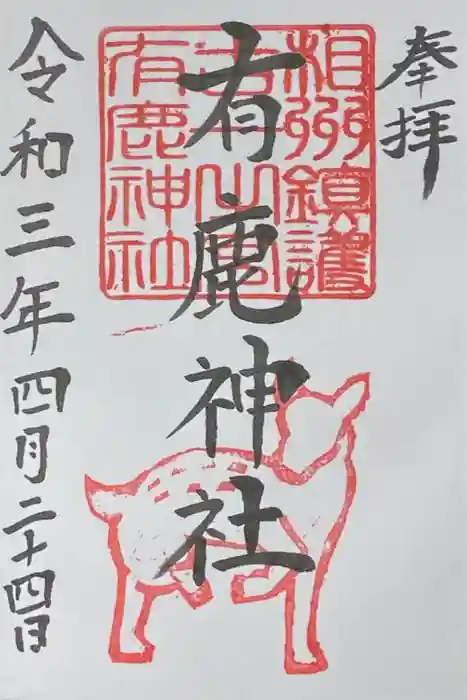 奉拝
有鹿神社
令和三年四月二十四日
相州鎮護
有鹿神社